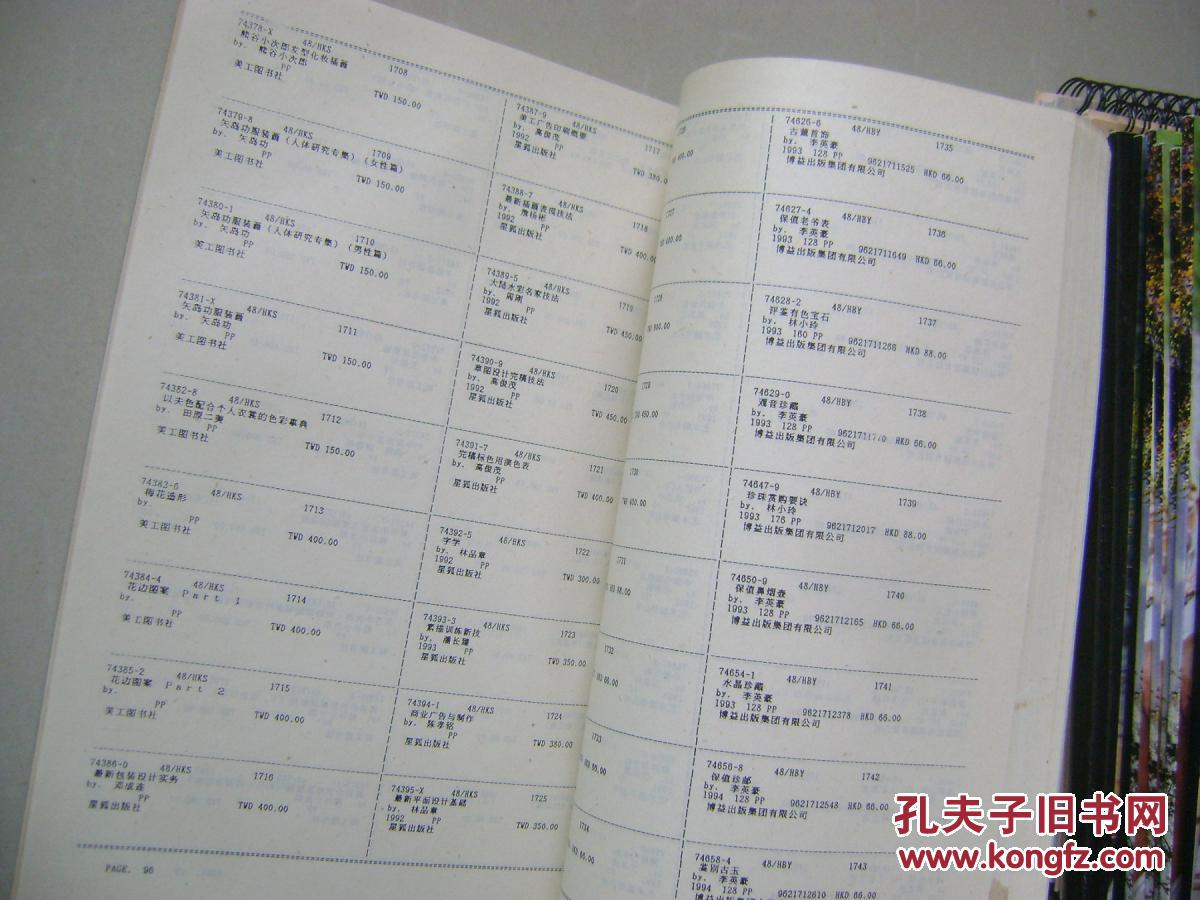 74378-X 48/HKS
熊谷小次郎发型化妆插画 1708
by. 熊谷小次郎
PP
美工图书社 TWD 150.00
74379-8 48/HKS
矢岛功服装画（人体研究专集）（女性篇） 1709
by. 矢岛功
PP
美工图书社 TWD 150.00
74380-1 48/HKS
矢岛功服装画（人体研究专集）（男性篇） 1710
by. 矢岛功
PP
美工图书社 TWD 150.00
74381-X 48/HKS
矢岛功服装画 1711
by. 矢岛功
PP
美工图书社 TWD 150.00
74382-8 48/HKS
以夫色配合个人衣裳的色彩事典 1712
by. 田原二美
PP
美工图书社 TWD 150.00
74383-6 48/HKS
梅花造形 1713
by.
PP
美工图书社 TWD 400.00
74384-4 48/HKS
花边图案 Part 1 1714
by.
PP
美工图书社 TWD 400.00
74385-2 48/HKS
花边图案 Part 2 1715
by.
PP
美工图书社 TWD 400.00
74386-0 48/HKS
最新包装设计实务 1716
by. 邓成连
PP
星狐出版社 TWD 400.00
PAGE. 96
74387-9 48/HKS
美工广告印刷概要 1717
by. 高俊茂
1992 PP
星狐出版社 TWD 380.
74388-7 48/HKS
最新插画表现技法 1718
by. 詹杨彬
1992 PP
星狐出版社 TWD 400.0
74389-5 48/HKS
大陆水彩名家技法 1719
by. 周刚
1992 PP
星狐出版社 TWD 450.00
74390-9 48/HKS
草图设计完稿技法 1720
by. 高俊茂
1992 PP
星狐出版社 TWD 450.00
74391-7 48/HKS
完稿标色用演色表 1721
by. 高俊茂
PP
星狐出版社 TWD 400.00
74392-5 48/HKS
字学 1722
by. 林品章
1992 PP
星狐出版社 TWD 300.00
74393-3 48/HKS
素描训练新技 1723
by. 潘长臻
1993 PP
星狐出版社 TWD 350.00
74394-1 48/HKS
商业广告与制作 1724
by. 陈孝铭
PP
星狐出版社 TWD 380.00
74395-X 48/HKS
最新平面设计基础 1725
by. 林品章
1992 PP
星狐出版社 TWD 350.00
400.00
1727
400.00
1728
900.00
1729
450.00
1730
400.00
1731
88.00
1732
66.00
1733
66.00
1734
66.00
74626-6 48/HBY
古董首饰 1735
by. 李英豪
1993 128 PP 9621711525 HKD 66.00
博益出版集团有限公司
74627-4 48/HBY
保值老爷表 1736
by. 李英豪
1993 128 PP 9621711649 HKD 66.00
博益出版集团有限公司
74628-2 48/HBY
评鉴有色宝石 1737
by. 林小玲
1993 160 PP 9621711266 HKD 88.00
博益出版集团有限公司
74629-0 48/HBY
观音珍藏 1738
by. 李英豪
1993 128 PP 9621711770 HKD 66.00
博益出版集团有限公司
74647-9 48/HBY
珍珠赏购要诀 1739
by. 林小玲
1993 176 PP 9621712017 HKD 88.00
博益出版集团有限公司
74650-9 48/HBY
保值鼻烟壶 1740
by. 李英豪
1993 128 PP 9621712165 HKD 66.00
博益出版集团有限公司
74654-1 48/HBY
水晶珍藏 1741
by. 李英豪
1993 128 PP 9621712378 HKD 66.00
博益出版集团有限公司
74656-8 48/HBY
保值珍邮 1742
by. 李英豪
1994 128 PP 9621712548 HKD 66.00
博益出版集团有限公司
74658-4 48/HBY
鉴别古玉 1743
by. 李英豪
1994 128 PP 9621712610 HKD 66.00
孔夫子旧书网
www.kongfz.com